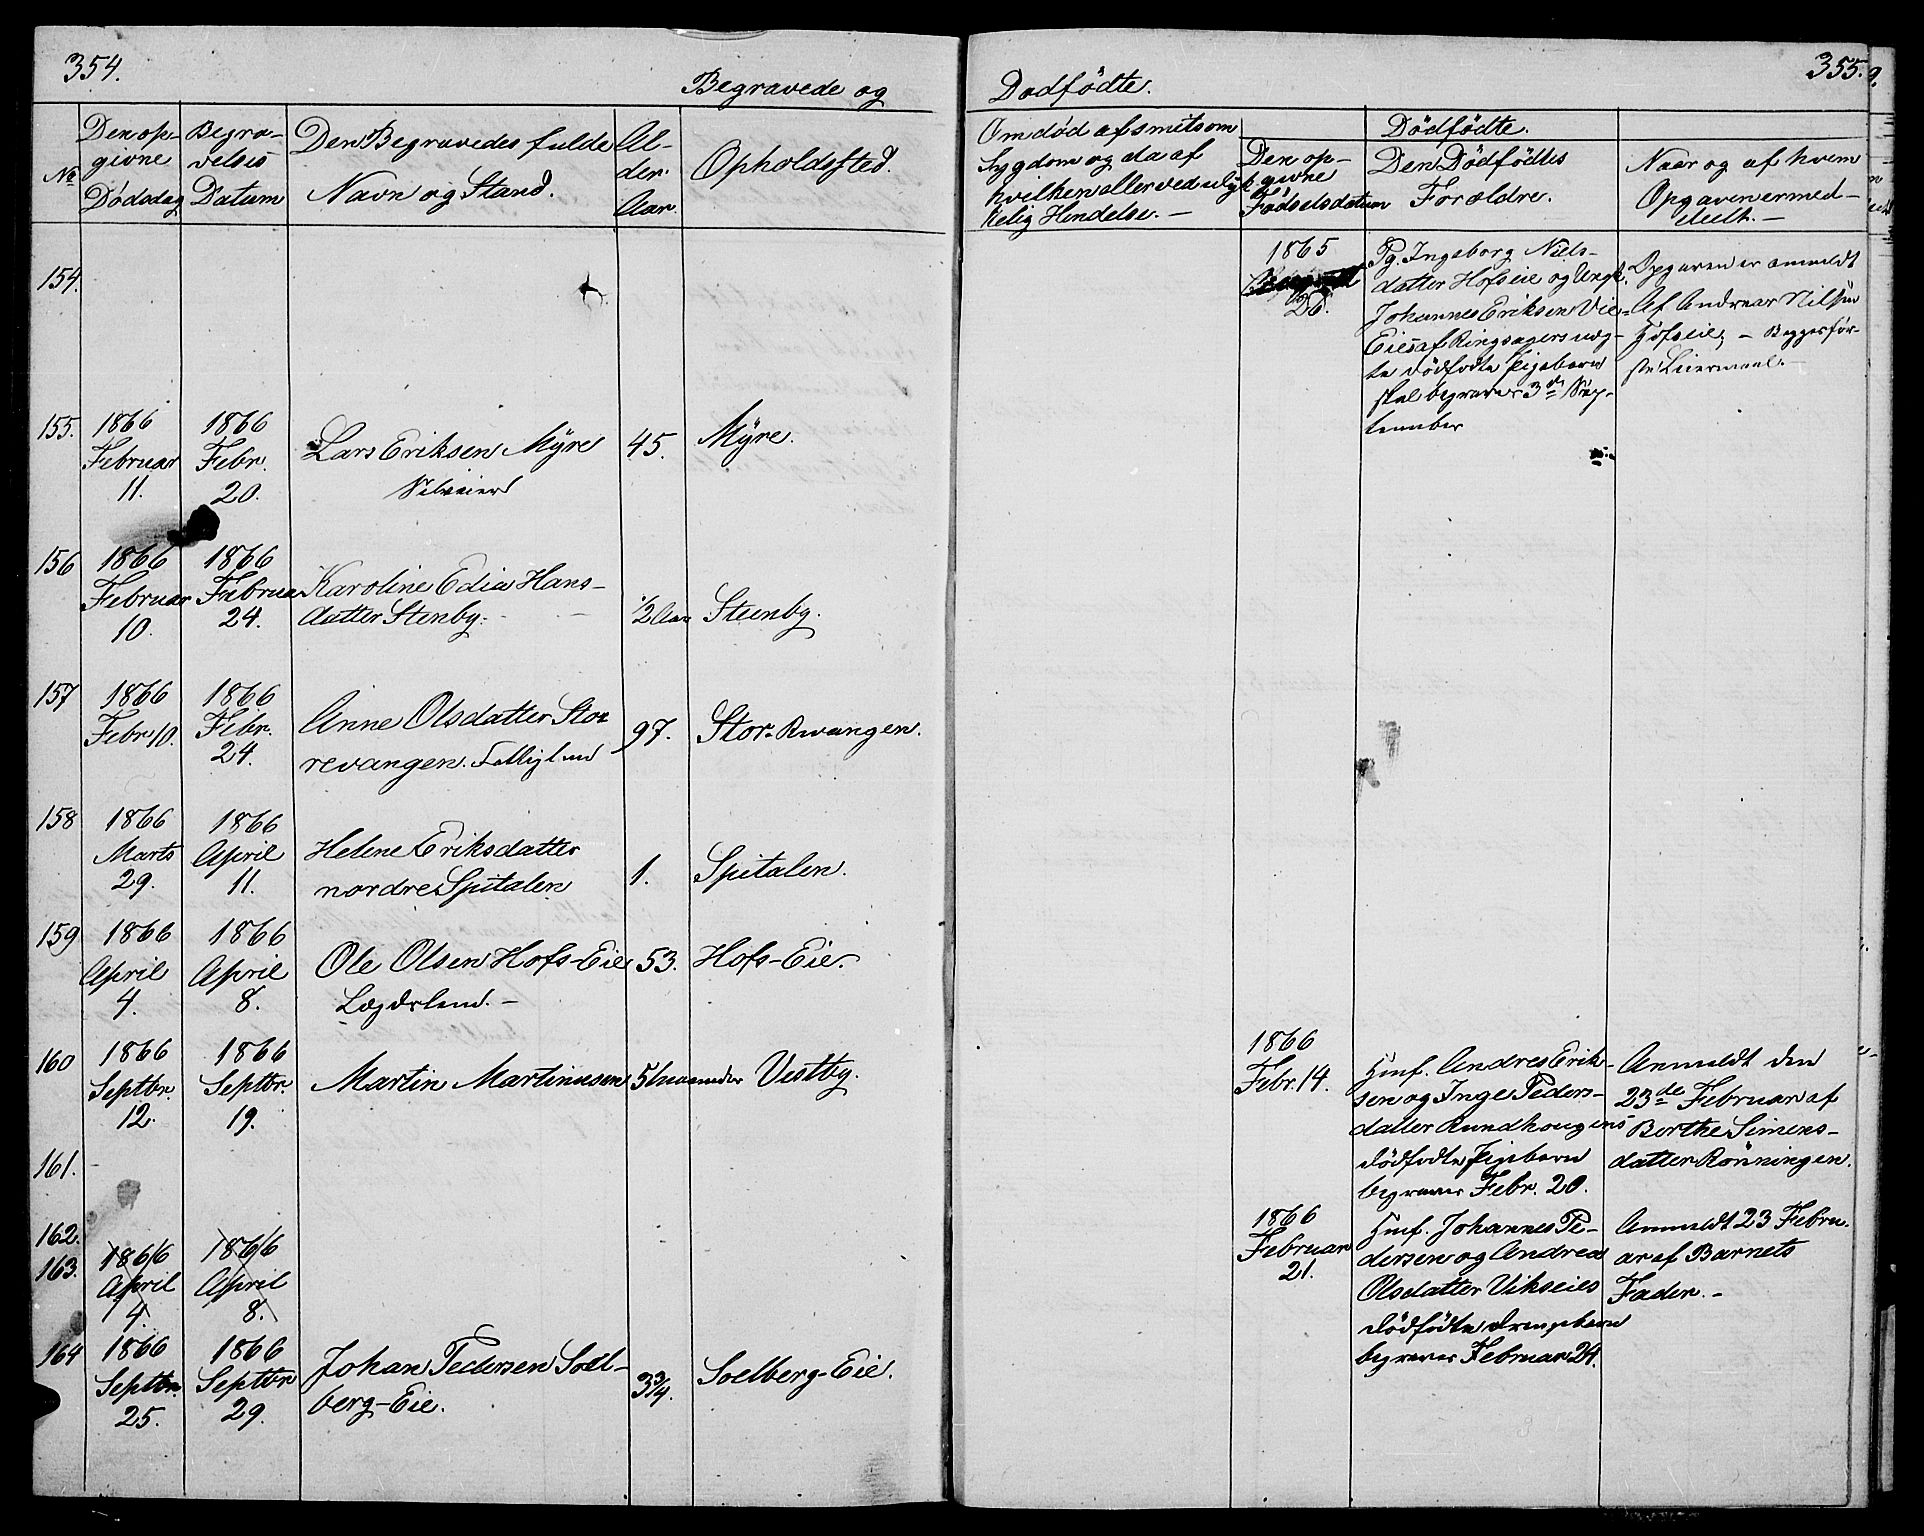 354.
Begravede og
No
Den op-
givne
Dödsdag
Begra-
velses
Datum
Den Begravedes fulde
Navn og Stand.
Al-
der.
Aar.
Opholdssted.
154.
155.
1866
Februar
11.
1866
Febr.
20.
Lars Eriksen Myre
Selveier
45.
Myre.
156
1866
Februar
10.
1866
Februar
24.
Karoline Edia Hans-
datter Stenby.
1/2 Aar
Steenby.
157
1866
Febr 10.
1866
Febr.
24.
Anne Olsdatter Stor
revangen. Fattiglem
97.
Stor-Rwangen.
158
1866
Marts
29.
1866
April
11.
Helene Eriksdatter
nordre Spitalen
1.
Spitalen.
159
1866
April
4.
1866
April
8.
Ole Olsen Hofs-Eie
Lægdslem. -
53.
Hofs-Eie.
160
1866
Septbr.
12.
1866
Septbr.
19.
Martin Martinusen
5 Maaneder
Vestby.
161.
162.
163.
1866
April
4.
1866
April
8.
164
1866
Septbr.
25.
1866
Septbr
29.
Johan Pedersen Soel-
berg-Eie.
3 3/4.
Soelberg-Eie.
355.
Dødfödte.
Om død af smitsom
Sygdom og da af
hvilken aller ved ulyk
kelig Hendelse. -
Dödfödte.
Den op-
givne
Födselsdatum
Den Dödfödtes
Forældre.
Naar og af hvem
Opgaven er med-
deelt. -
1865
26.
Pg. Ingeborg Niels-
datter Hofseie og Ungk.
Johannes Eriksen Vie-
Eies af Ringsagers uæg-
te dödfødte Pigebarn
skal begraves 3de Sep-
tember
Opgaven er anmeldt
Af Andreas Nilsen
Hofseie, - Begges för-
ste Leiermaal. -
1866
Febr. 14.
Huusf. Andres Erik-
sen og Inge Peders-
datter Rundhougens
dödfødte Pigebarn
begraves Febr. 20.
Anmeldt den
23de Februar af
Berthe Simens-
datter Rönningen.
1866
Februar
21.
Huusf. Johannes Pe-
dersen og Andrea
Olsdatter Vikseies
dödfödte drengebarn
begraves Februar 24.
Anmeldt 23 Febru-
ar af Barnets
Fader. -